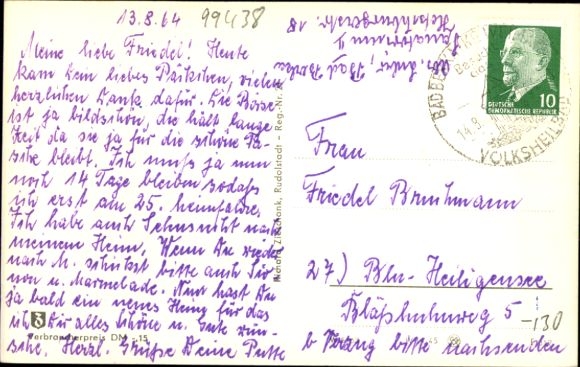 13.8.64
99438
Meine liebe Friedel! Heute
kam Dein liebes Päckchen, vielen
herzlichen Dank dafür. Die Börse
ist ja bildschön, die hält lange
Zeit da sie ja für die schöne Ta-
sche bleibt. Ich muß ja nun
noch 14 Tage bleiben sodaß
ich erst am 25. heimfahre.
Ich habe auch Sehnsucht nach
meinem Heim. Wenn Du wieder
nach M. schickst bitte auch
u. Marmelade. Nun hast Du
ja bald ein neues Heim für das
ich Dir alles Schöne u. Gute wün-
sche. Herzl. Grüße Deine
Verbraucherpreis DM -,15
Rudolstadt - Reg.-Nr.
Bad Berka
Sanatorium II
18
BAD BERKA
VOLKSHEILBAD
14.8.
DEUTSCHE
DEMOKRATISCHE REPUBLIK
10
Frau
Friedel Bruhmann
27) Bln-Heiligensee
Bläßhuhnweg 5
-130
b Vzang bitte nachsenden